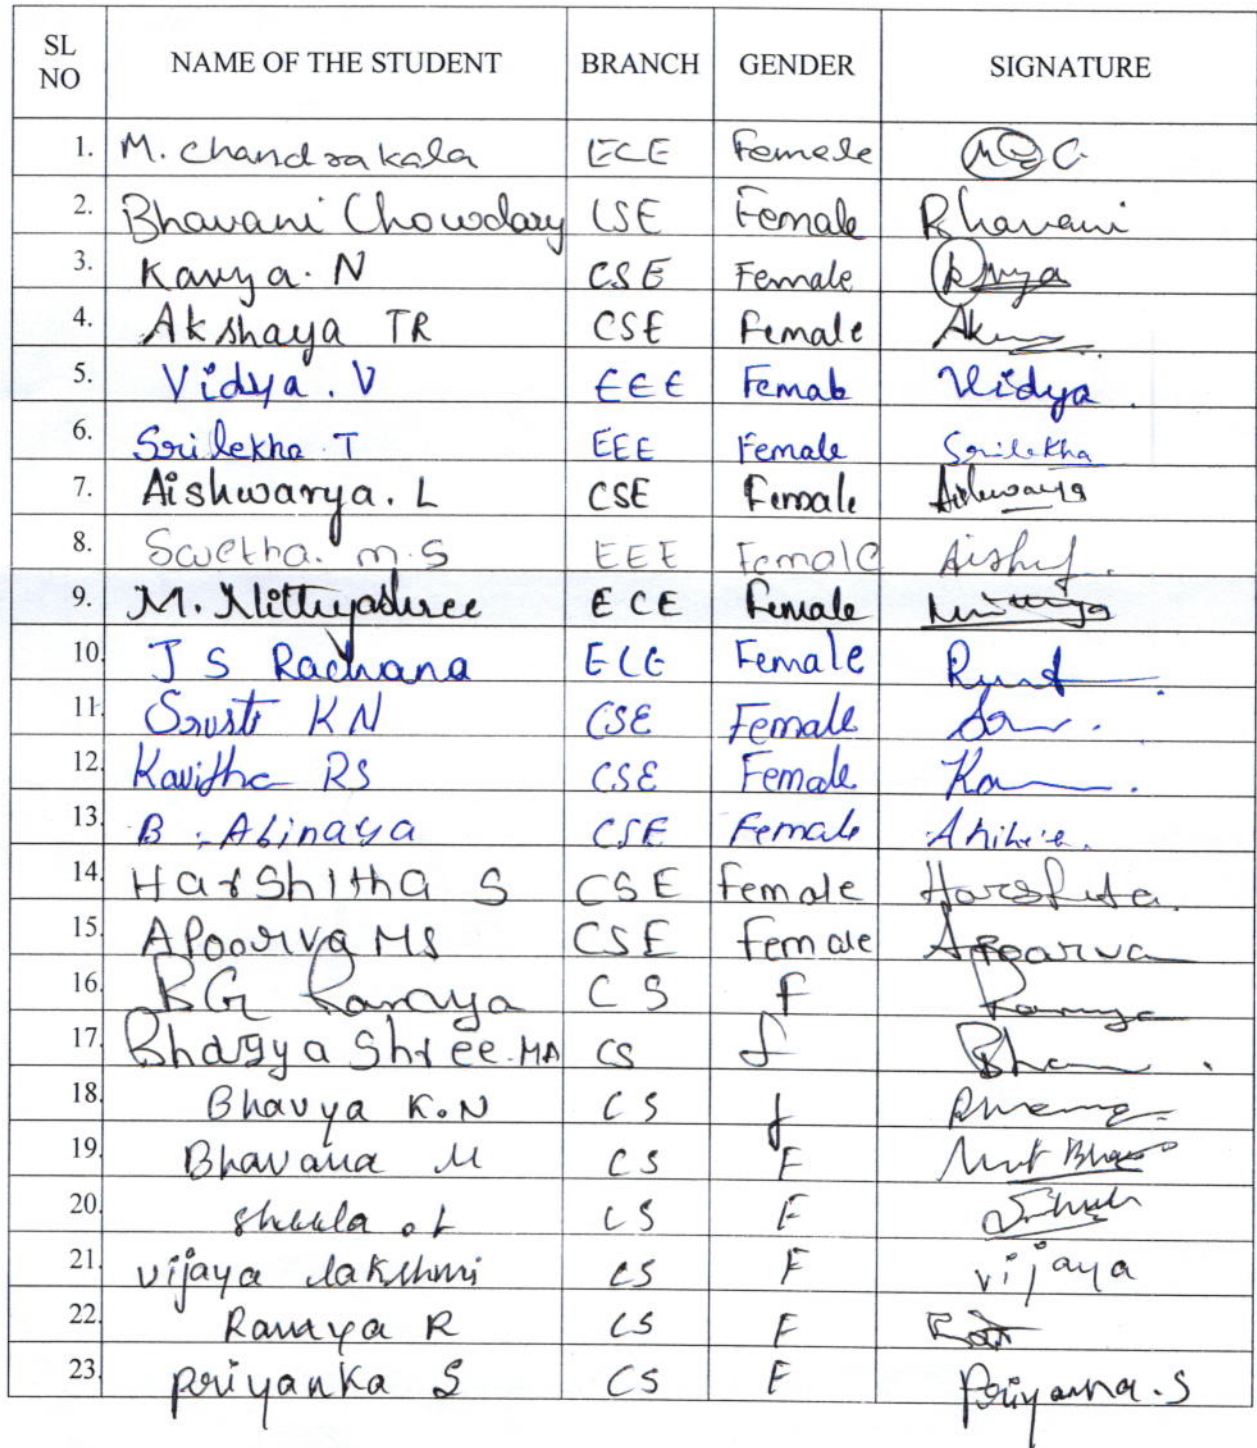 SL NO NAME OF THE STUDENT BRANCH GENDER SIGNATURE
1. M. Chandrakala ECE Female
2. Bhavani Chowdary CSE Female Bhavani
3. Kavya. N CSE Female
4. Akshaya TR CSE Female
5. Vidya . V EEE Female Vidya .
6. Srilekha . T EEE Female Srilekha
7. Aishwarya . L CSE Female Aishwarya
8. Swetha. m.s EEE Female
9. M. Nithyashree ECE Female
10. J S Rachana ECE Female
11. Srusti K N CSE Female
12. Kavitha RS CSE Female
13. B . Abinaya CSE Female
14. Harshitha S CSE Female
15. APoorva MS CSE Female Apoorva
16. BG Ramya CS F Ramya
17. Bhagya Shree . MA CS f
18. Bhavya K.N CS f
19. Bhavana M CS F
20. Sheela . L CS F
21. vijaya lakshmi CS F vijaya
22. Ramya R CS F
23. priyanka S CS F Priyanka . S